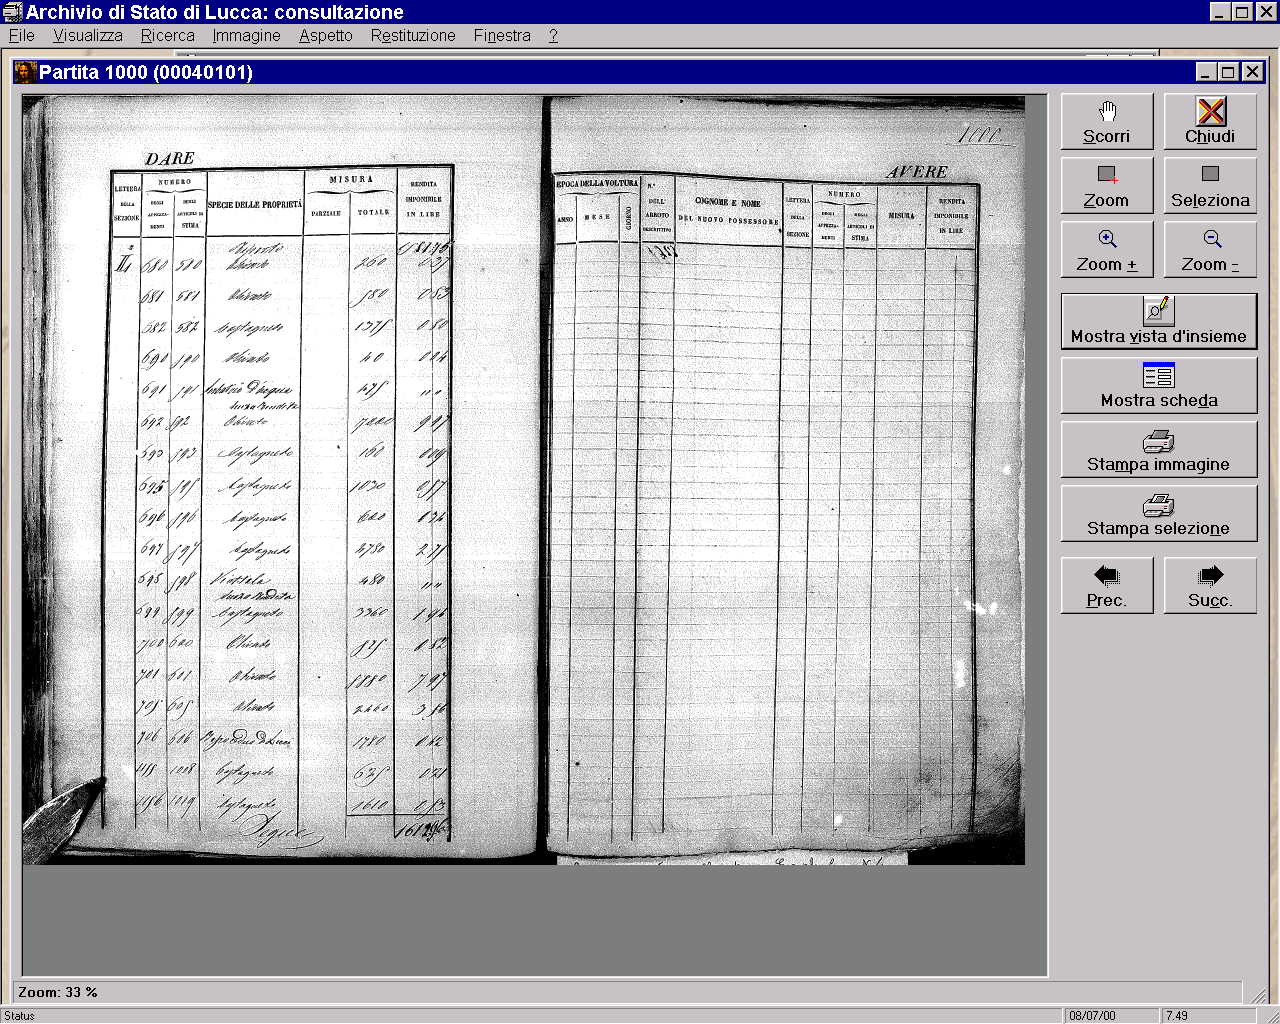 Archivio di Stato di Lucca: consultazione
File Visualizza Ricerca Immagine Aspetto Restituzione Finestra ?
Partita 1000 (00040101)
1000
DARE
LETTERA DELLA SEZIONE
NUMERO
DEGLI APPEZZAMENTI
DEGLI ARTICOLI DI STIMA
SPECIE DELLE PROPRIETÀ
MISURA
PARZIALE
TOTALE
RENDITA IMPONIBILE IN LIRE
Riporto
680 580 Olivato 260
681 581 Olivato 580 0 83
682 582 Castagneto 1375 0 80
690 590 Olivato 40 0 04
691 591 475
senza rendita
692 592 Olivato 7000 9 97
693 593 Castagneto 160 0 09
695 595 Castagneto 1030 0 57
696 596 Castagneto 600 0 34
697 597 Castagneto 4730 2 75
698 598 Viottola 480
senza rendita
699 599 Castagneto 3360 1 96
700 600 Olivato 0 52
701 601 Olivato 7 97
705 605 Olivato 2460
706 606 1780
Castagneto 635
Castagneto 1610
Segue
AVERE
EPOCA DELLA VOLTURA
ANNO
MESE
GIORNO
N.° DELL' ARROTO DESCRITTIVO
COGNOME E NOME
DEL NUOVO POSSESSORE
LETTERA DELLA SEZIONE
NUMERO
DEGLI APPEZZAMENTI
DEGLI ARTICOLI DI STIMA
MISURA
RENDITA IMPONIBILE IN LIRE
Scorri
Chiudi
Zoom
Seleziona
Zoom +
Zoom -
Mostra vista d'insieme
Mostra scheda
Stampa immagine
Stampa selezione
Prec.
Succ.
Zoom: 33 %
Status
08/07/00
7.49